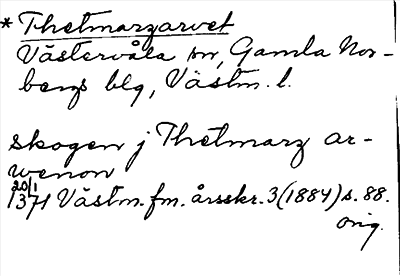 * Thetmarzarvet
Västervåla sn, Gamla Nor-
bergs blg, Västm. l.
skogen j Thetmarz ar-
wenon
20/1
1371 Västm. fm. årsskr. 3 (1884) s. 88.
orig.